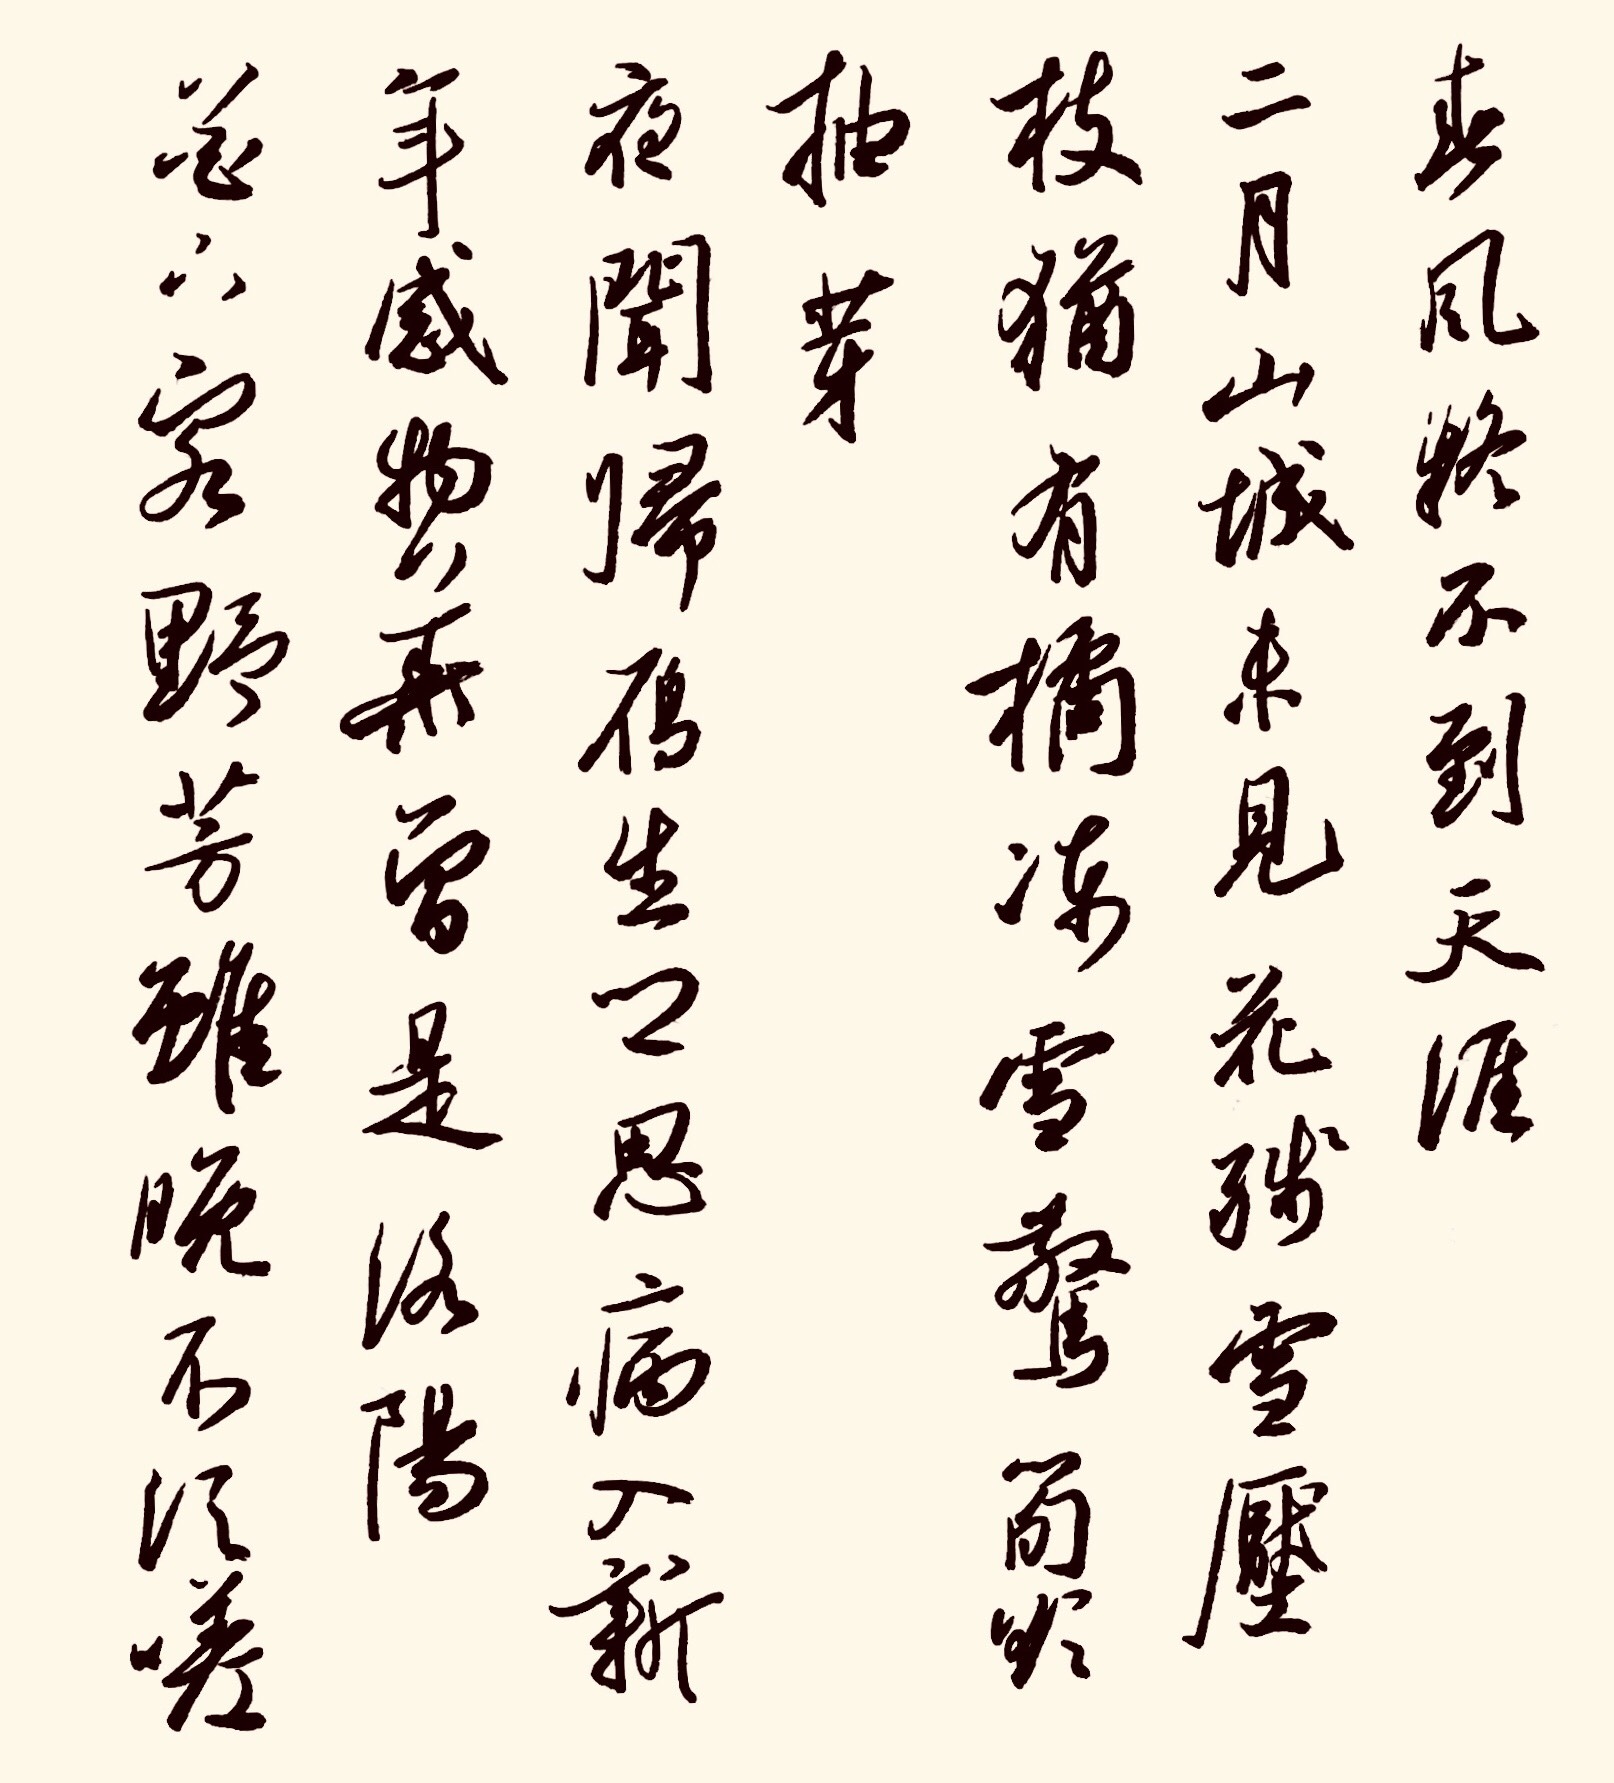 春風疑不到天涯
二月山城未見花殘雪壓
枝猶有橘凍雷驚筍欲
抽芽
夜聞歸鴈生鄉思病入新
年感物華曾是洛陽
花下客野芳雖晚不須嗟